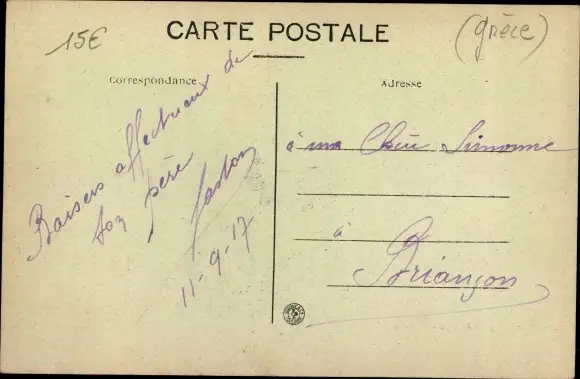 15€
CARTE POSTALE
(grèce)
Correspondance
Adresse
Baisers affectueux de
ton père
Gaston
11-9-17
à ma Chère Simonne
à
Briançon